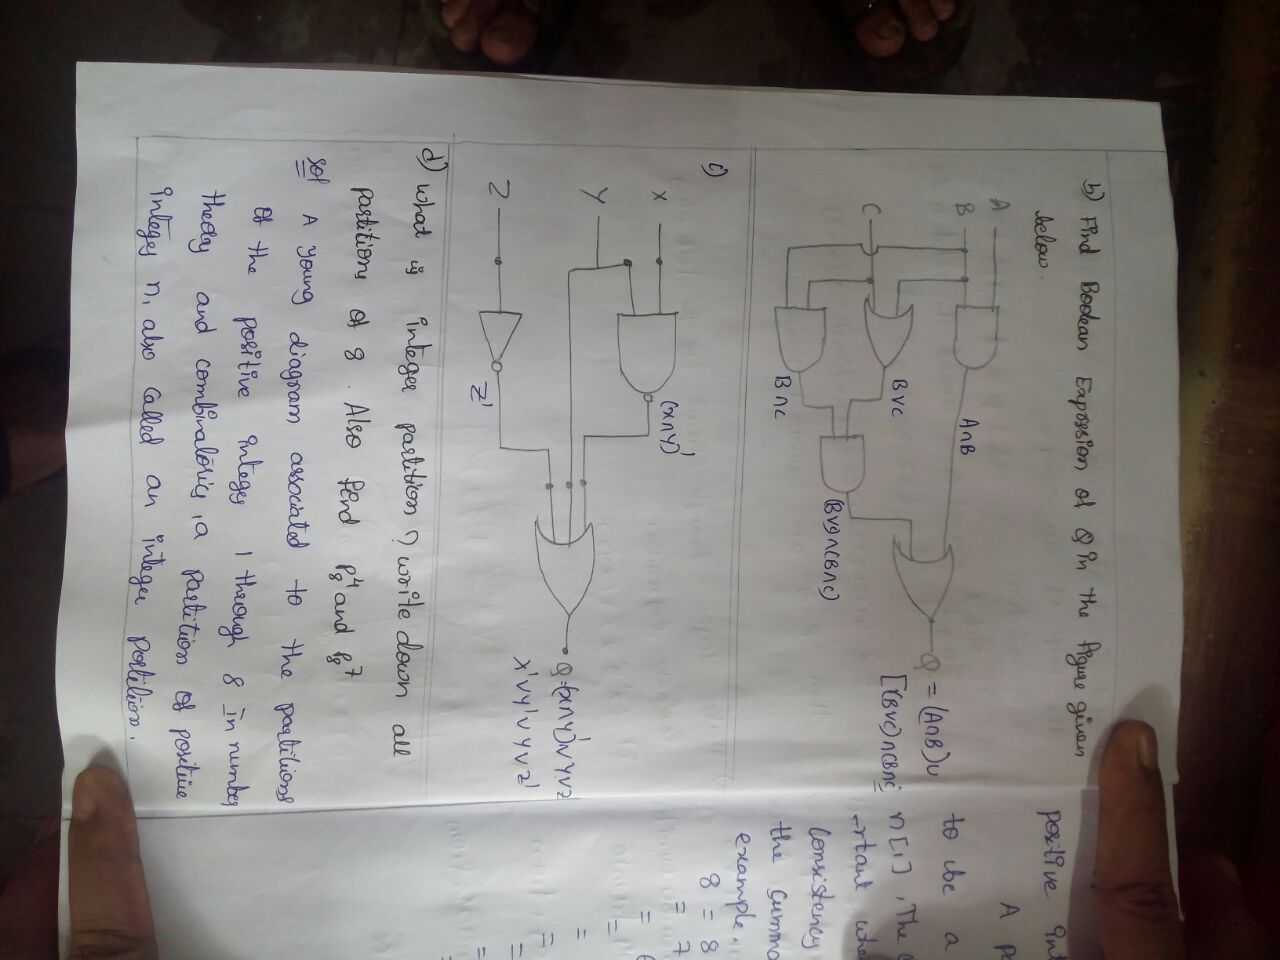 b) Find Boolean Expression of Q in the figure given
below.
A
B
C
A∩B
BVC
B∩C
(BVC)∩(B∩C)
Q = (A∩B)U
[(BVC)∩(B∩C
c)
X
Y
Z
(X∩Y)'
Z'
Q=(X∩Y)'VYVZ
X'VY'VYVZ'
d) What is integer partition? write down all
partitions of 8. Also find P₈⁴ and P₈⁷
sol A young diagram associated to the partitions
of the positive integer 1 through 8 in number
theory and combinatorics, a partition of positive
integer n, also called an integer partition.
positive int
A
to be a
n[1], The
consistency
the summa
example.
8 = 8
= 7
=
=
=
=
=